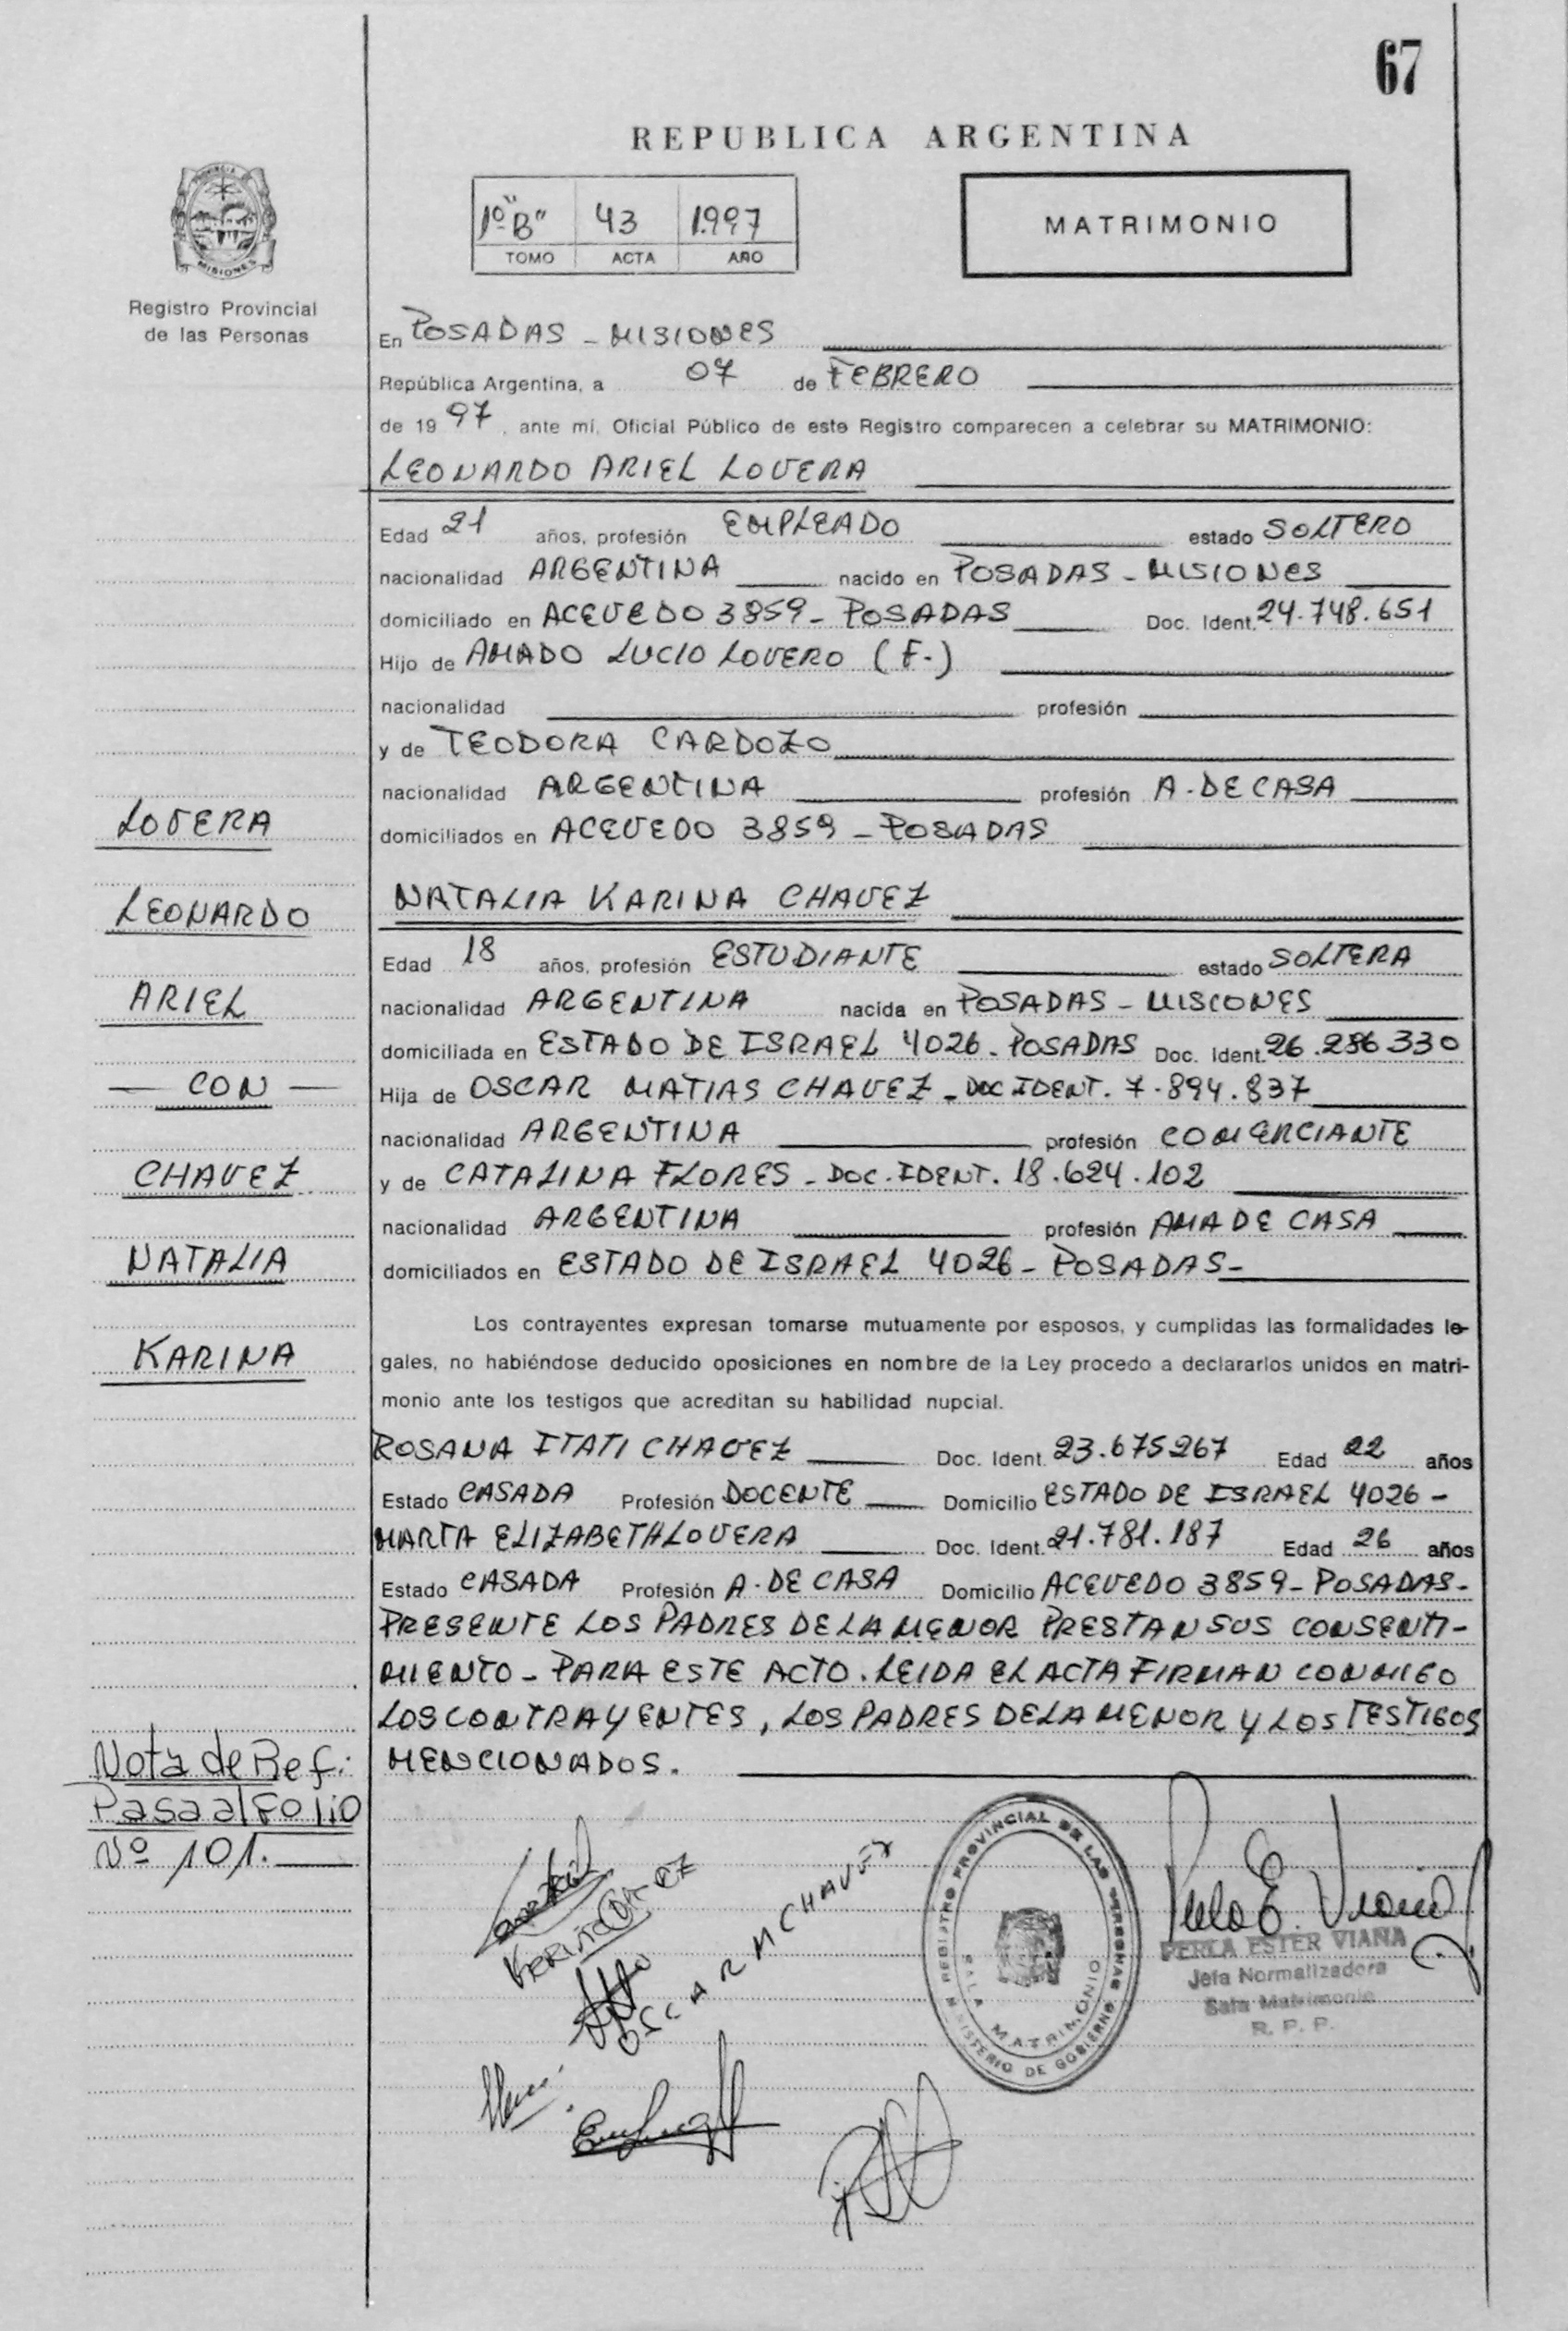 67
REPUBLICA ARGENTINA
PROVINCIA DE
MISIONES
Registro Provincial
de las Personas
1º "B" 43 1997
TOMO ACTA AÑO
MATRIMONIO
En POSADAS - MISIONES
República Argentina, a 07 de FEBRERO
de 19 97, ante mí, Oficial Público de este Registro comparecen a celebrar su MATRIMONIO:
LEONARDO ARIEL LOVERA
Edad 21 años, profesión EMPLEADO estado SOLTERO
nacionalidad ARGENTINA nacido en POSADAS - MISIONES
domiciliado en ACEVEDO 3859 - POSADAS Doc. Ident. 24.748.651
Hijo de AMADO LUCIO LOVERO (F.)
nacionalidad profesión
y de TEODORA CARDOZO
nacionalidad ARGENTINA profesión A. DE CASA
domiciliados en ACEVEDO 3859 - POSADAS
NATALIA KARINA CHAVEZ
Edad 18 años, profesión ESTUDIANTE estado SOLTERA
nacionalidad ARGENTINA nacida en POSADAS - MISIONES
domiciliada en ESTADO DE ISRAEL 4026 - POSADAS Doc. Ident. 26.286.330
Hija de OSCAR MATIAS CHAVEZ - DOC IDENT. 7.894.837
nacionalidad ARGENTINA profesión COMERCIANTE
y de CATALINA FLORES - DOC. IDENT. 18.624.102
nacionalidad ARGENTINA profesión AMA DE CASA
domiciliados en ESTADO DE ISRAEL 4026 - POSADAS -
Los contrayentes expresan tomarse mutuamente por esposos, y cumplidas las formalidades le-
gales, no habiéndose deducido oposiciones en nombre de la Ley procedo a declararlos unidos en matri-
monio ante los testigos que acreditan su habilidad nupcial.
ROSANA ITATI CHAVEZ Doc. Ident. 23.675267 Edad 22 años
Estado CASADA Profesión DOCENTE Domicilio ESTADO DE ISRAEL 4026 -
MARTA ELIZABETH LOVERA Doc. Ident. 21.781.187 Edad 26 años
Estado CASADA Profesión A. DE CASA Domicilio ACEVEDO 3859 - POSADAS -
PRESENTE LOS PADRES DE LA MENOR PRESTAN SUS CONSENTI-
MIENTO - PARA ESTE ACTO. LEIDA EL ACTA FIRMAN CONMIGO
LOS CONTRAYENTES, LOS PADRES DE LA MENOR Y LOS TESTIGOS
MENCIONADOS.
LOVERA
LEONARDO
ARIEL
CON
CHAVEZ
NATALIA
KARINA
Nota de Ref:
Pasa al Folio
Nº 101.
OSCAR M CHAVEZ
REGISTRO PROVINCIAL DE LAS PERSONAS
MINISTERIO DE GOBIERNO
SALA MATRIMONIO
Perla E. Viana
PERLA ESTER VIANA
Jefa Normalizadora
Sala Matrimonio
R. P. P.